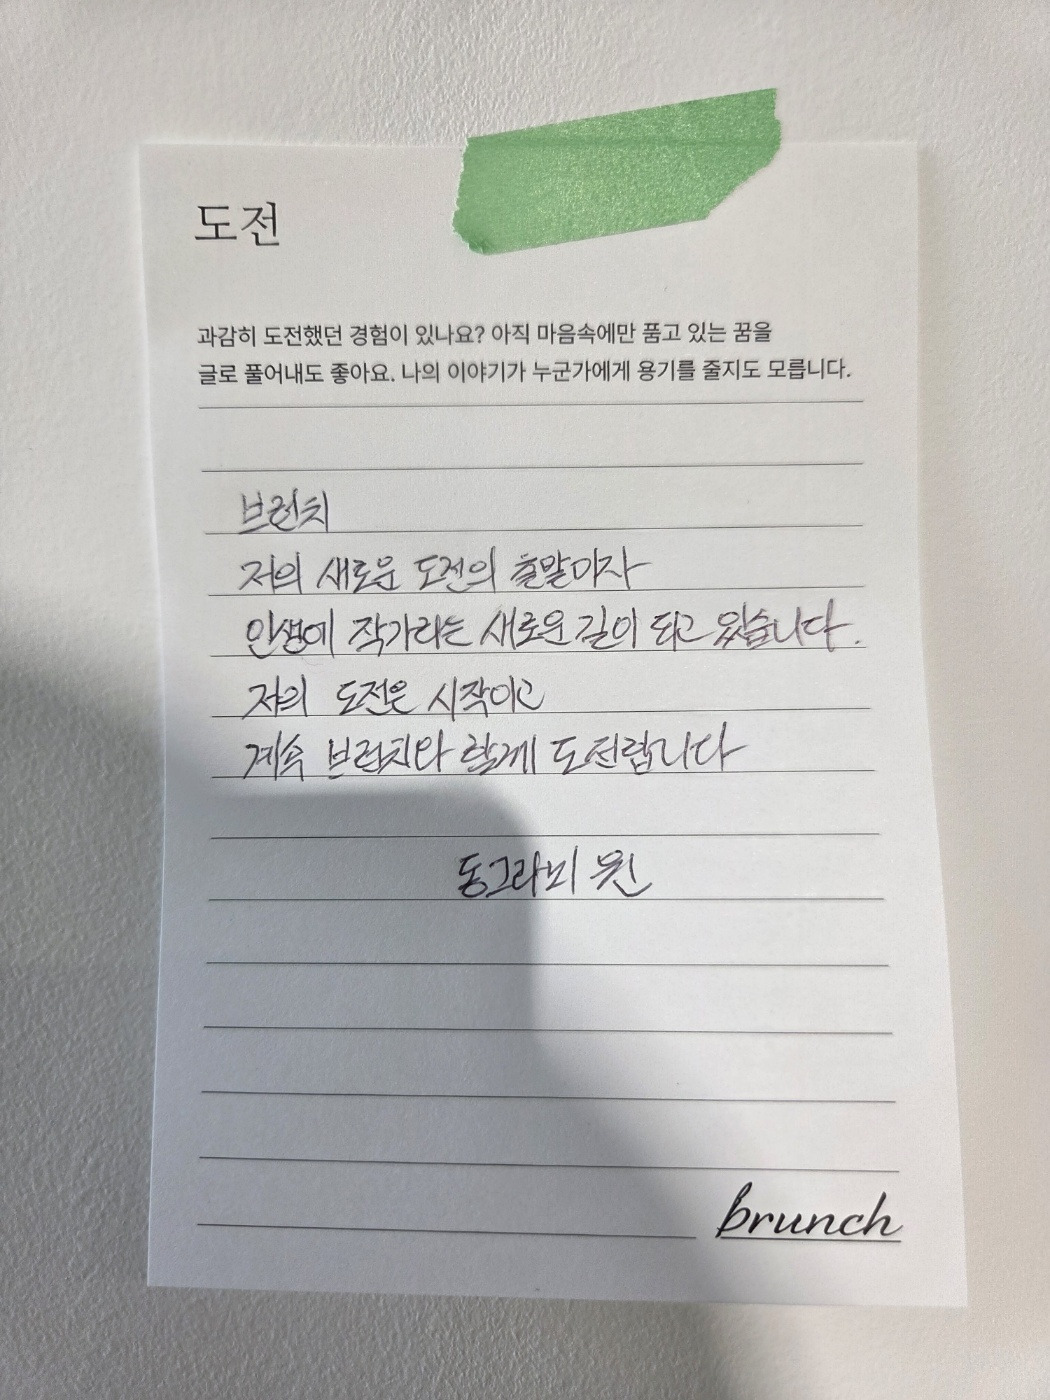 도전
과감히 도전했던 경험이 있나요? 아직 마음속에만 품고 있는 꿈을
글로 풀어내도 좋아요. 나의 이야기가 누군가에게 용기를 줄지도 모릅니다.
브런치
저의 새로운 도전의 출발이자
인생에 작가라는 새로운 길이 되고 있습니다.
저의 도전은 시작이고
계속 브런치와 함께 도전합니다
동그라미 원
brunch